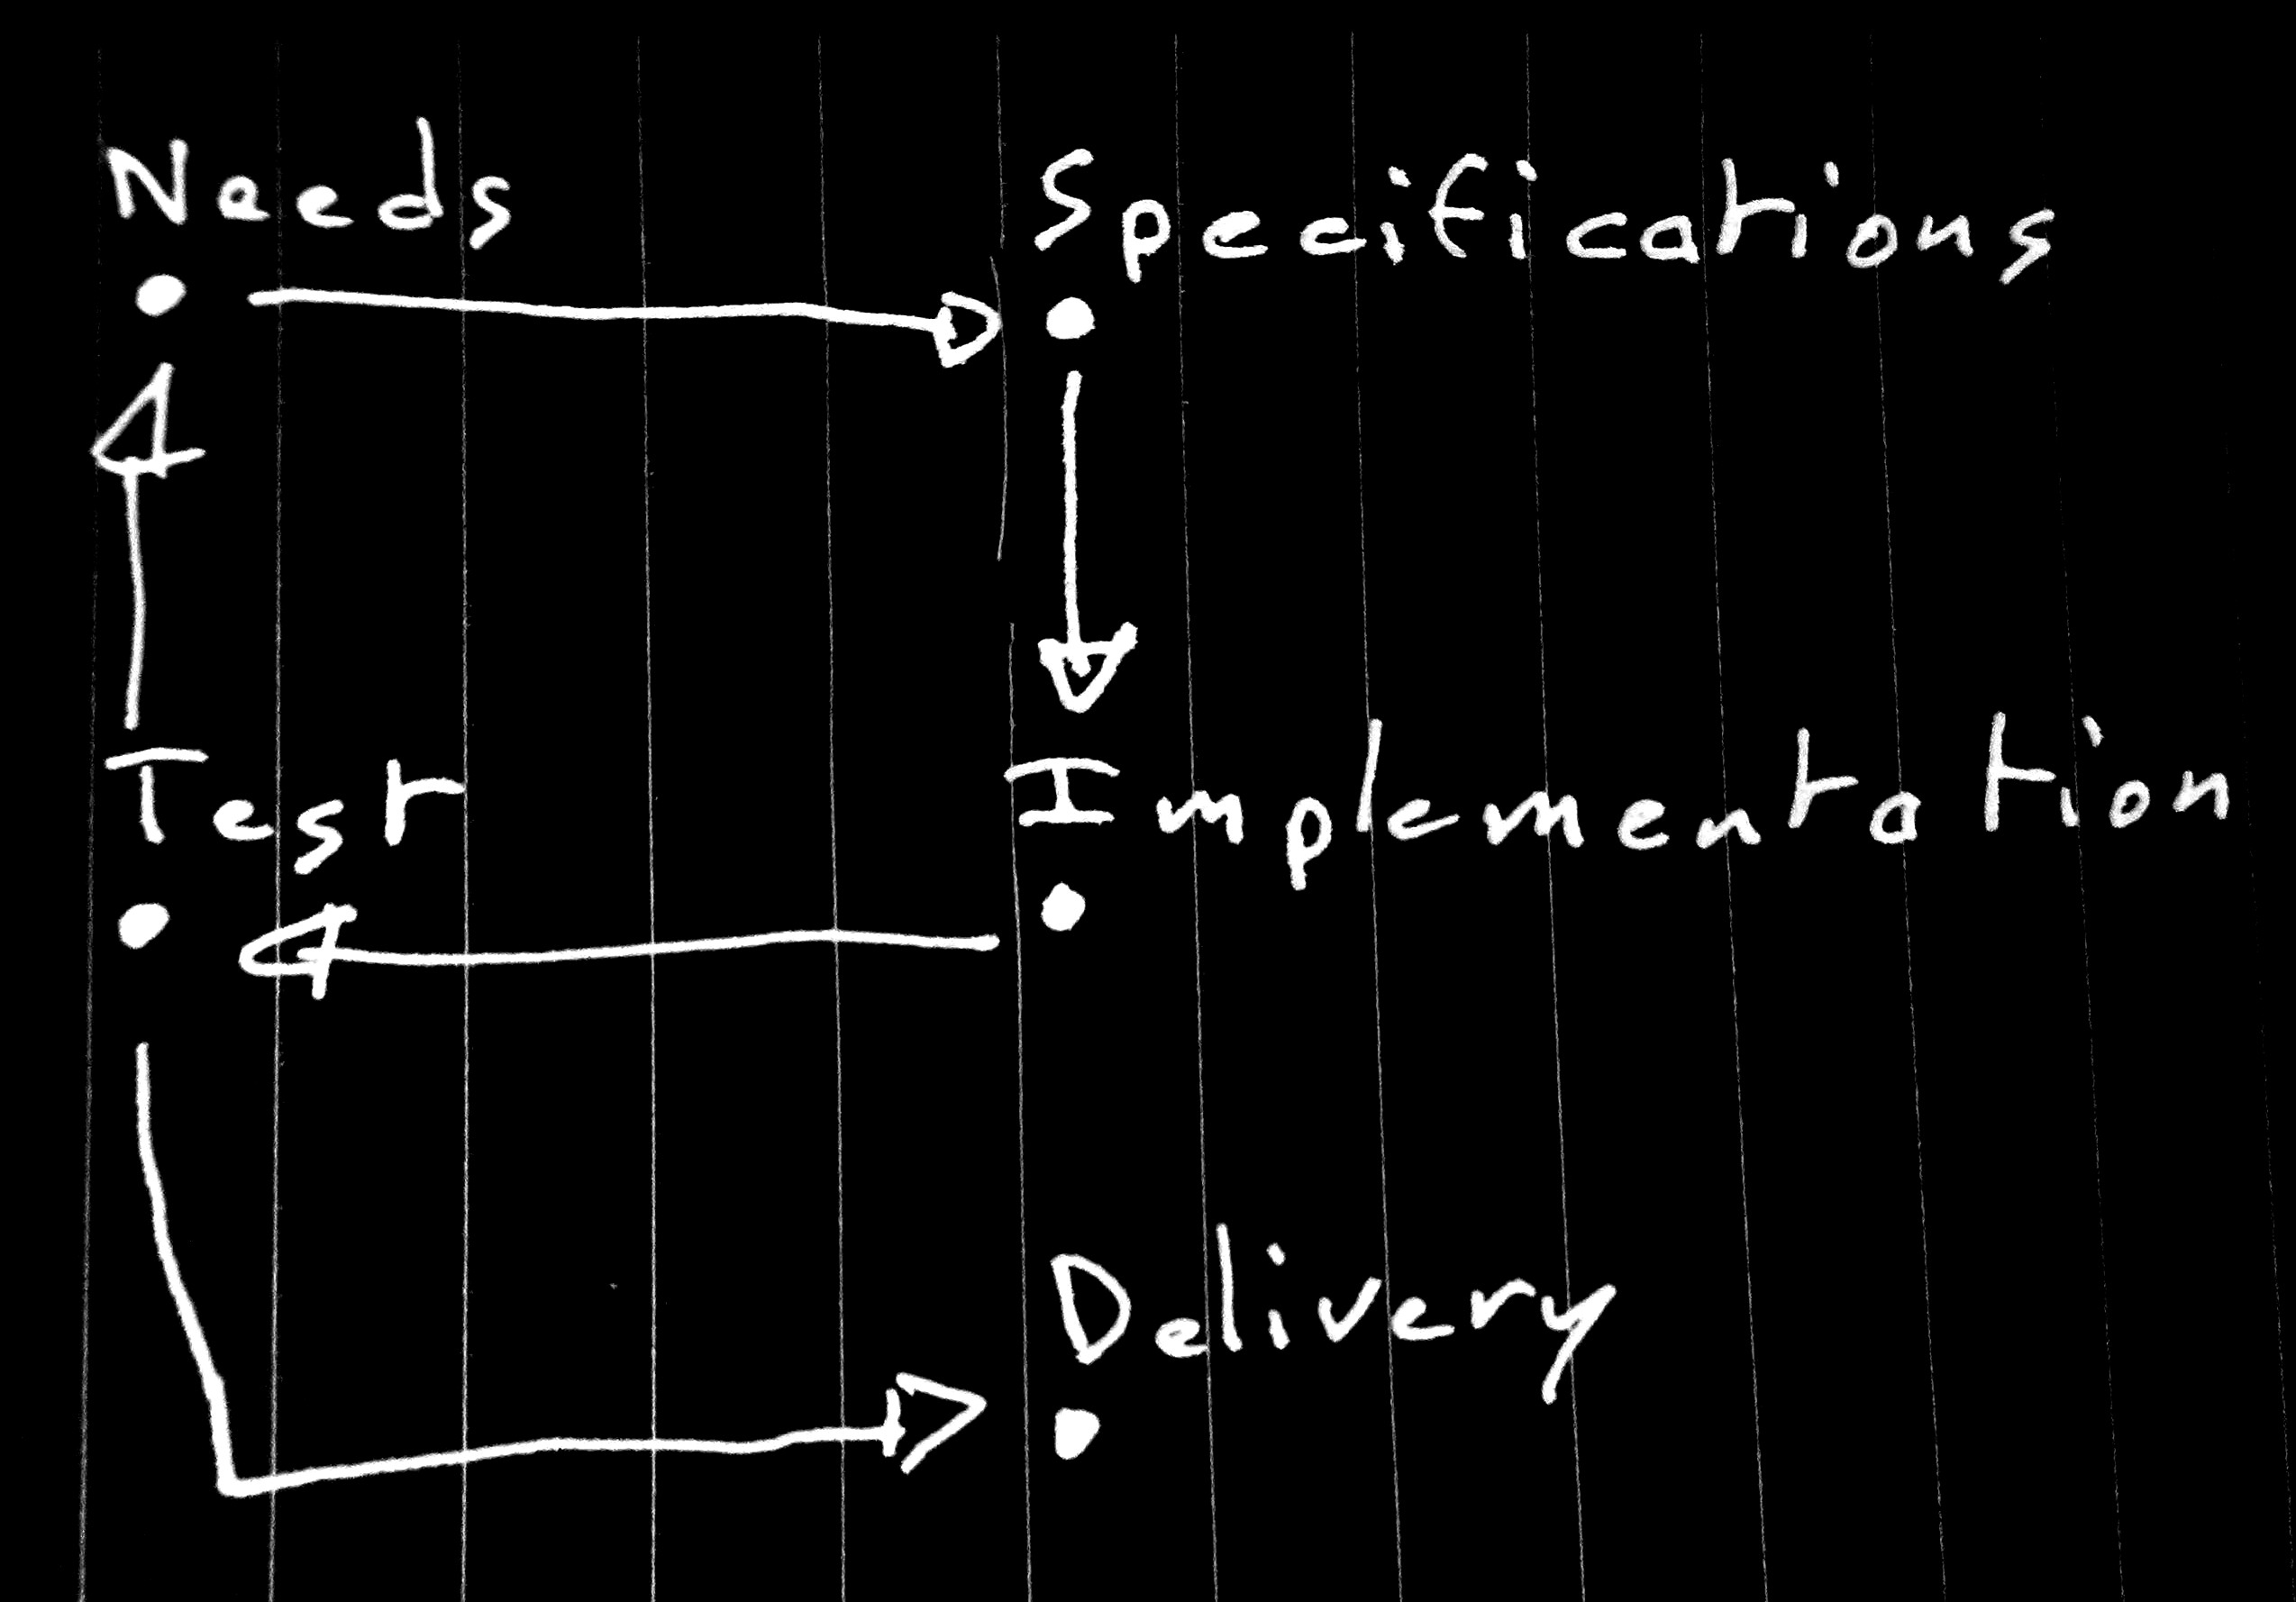 Needs
Specifications
Test
Implementation
Delivery